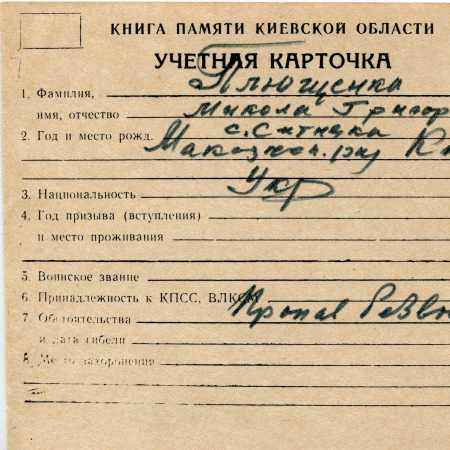 КНИГА ПАМЯТИ КИЕВСКОЙ ОБЛАСТИ
УЧЕТНАЯ КАРТОЧКА
1. Фамилия, Плющенко
имя, отчество Микола Григор
2. Год и место рожд. с. Ситняки
Макар
3. Национальность Укр
4. Год призыва (вступления)
и место проживания
5. Воинское звание
6. Принадлежность к КПСС, ВЛКСМ
7 Обстоятельства Пропав безві
и дата гибели
8. Место захоронения